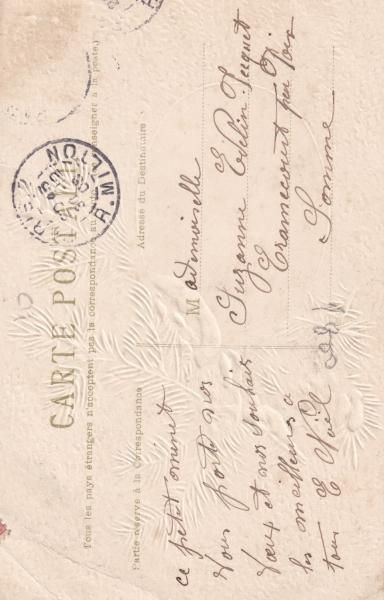 CARTE POSTALE
Tous les pays étrangers n'acceptent pas la correspondance au
à la poste
Partie réservée à la Correspondance
Adresse du Destinataire
ce petit minet
vous porte nos
vœux et nos souhaits
les meilleures a
tous E Noël
Mademoiselle
Suzanne Edelin
Eramecourt par Poix
Somme
MILLY